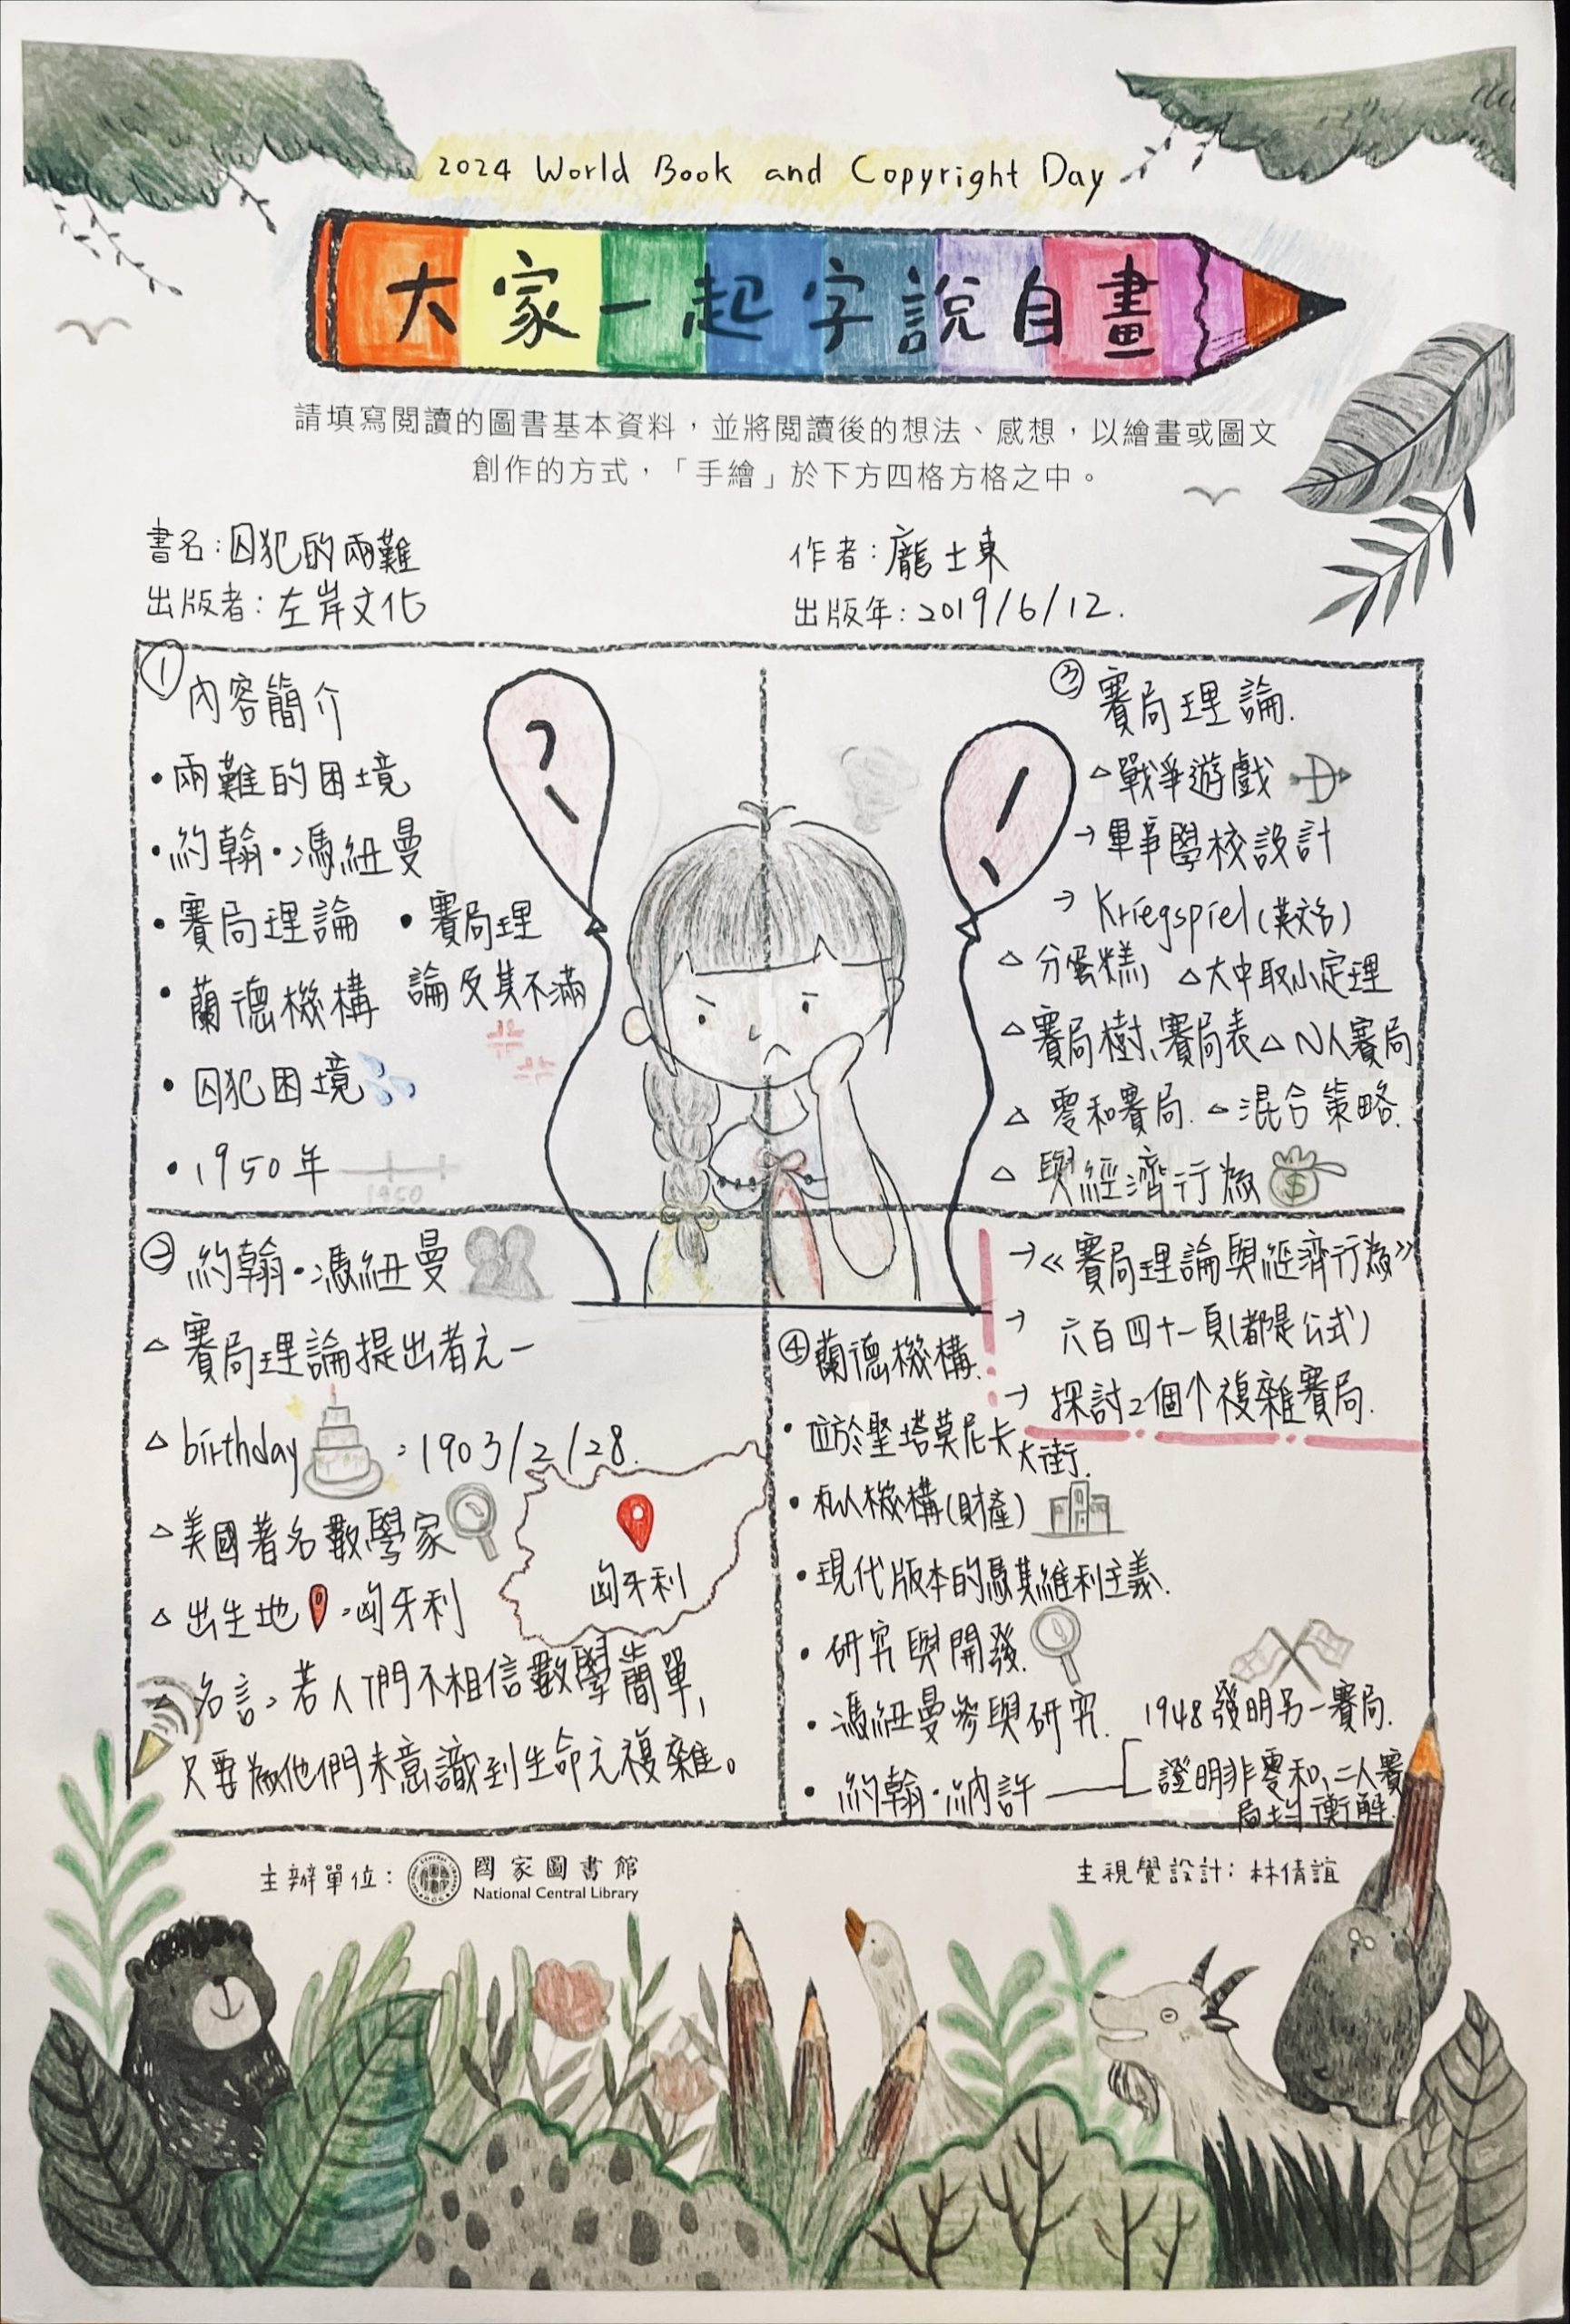 2024 World Book and Copyright Day
大家一起字說自畫
請填寫閱讀的圖書基本資料，並將閱讀後的想法、感想，以繪畫或圖文
創作的方式，「手繪」於下方四格方格之中。
書名：囚犯的兩難
作者：龐士東
出版者：左岸文化
出版年：2019/6/12.
① 內容簡介
•兩難的困境
•約翰·馮紐曼
•賽局理論
•賽局理
論及其不滿
•蘭德機構
•囚犯困境
•1950年
1950
?
!
② 約翰·馮紐曼
△賽局理論提出者之一
△birthday：1903/2/28.
△美國著名數學家
△出生地：匈牙利
匈牙利
△名言：若人們不相信數學簡單，
只要為他們未意識到生命之複雜。
③ 賽局理論.
△戰爭遊戲
→軍事學校設計
→Kriegspiel(英文名)
△分蛋糕 △大中取小定理
△賽局樹、賽局表 △N人賽局
△零和賽局. △混合策略.
△與經濟行為
$
→《賽局理論與經濟行為》
→六百四十一頁(都是公式)
→探討2個个複雜賽局.
④ 蘭德機構.
•位於聖塔莫尼卡大街.
•私人機構(財產)
•現代版本的馬其維利主義.
•研究與開發.
•馮紐曼參與研究.
•約翰·納許
1948發明另一賽局.
證明非零和、二人賽
局均衡解.
主辦單位：國家圖書館
National Central Library
主視覺設計：林倩誼